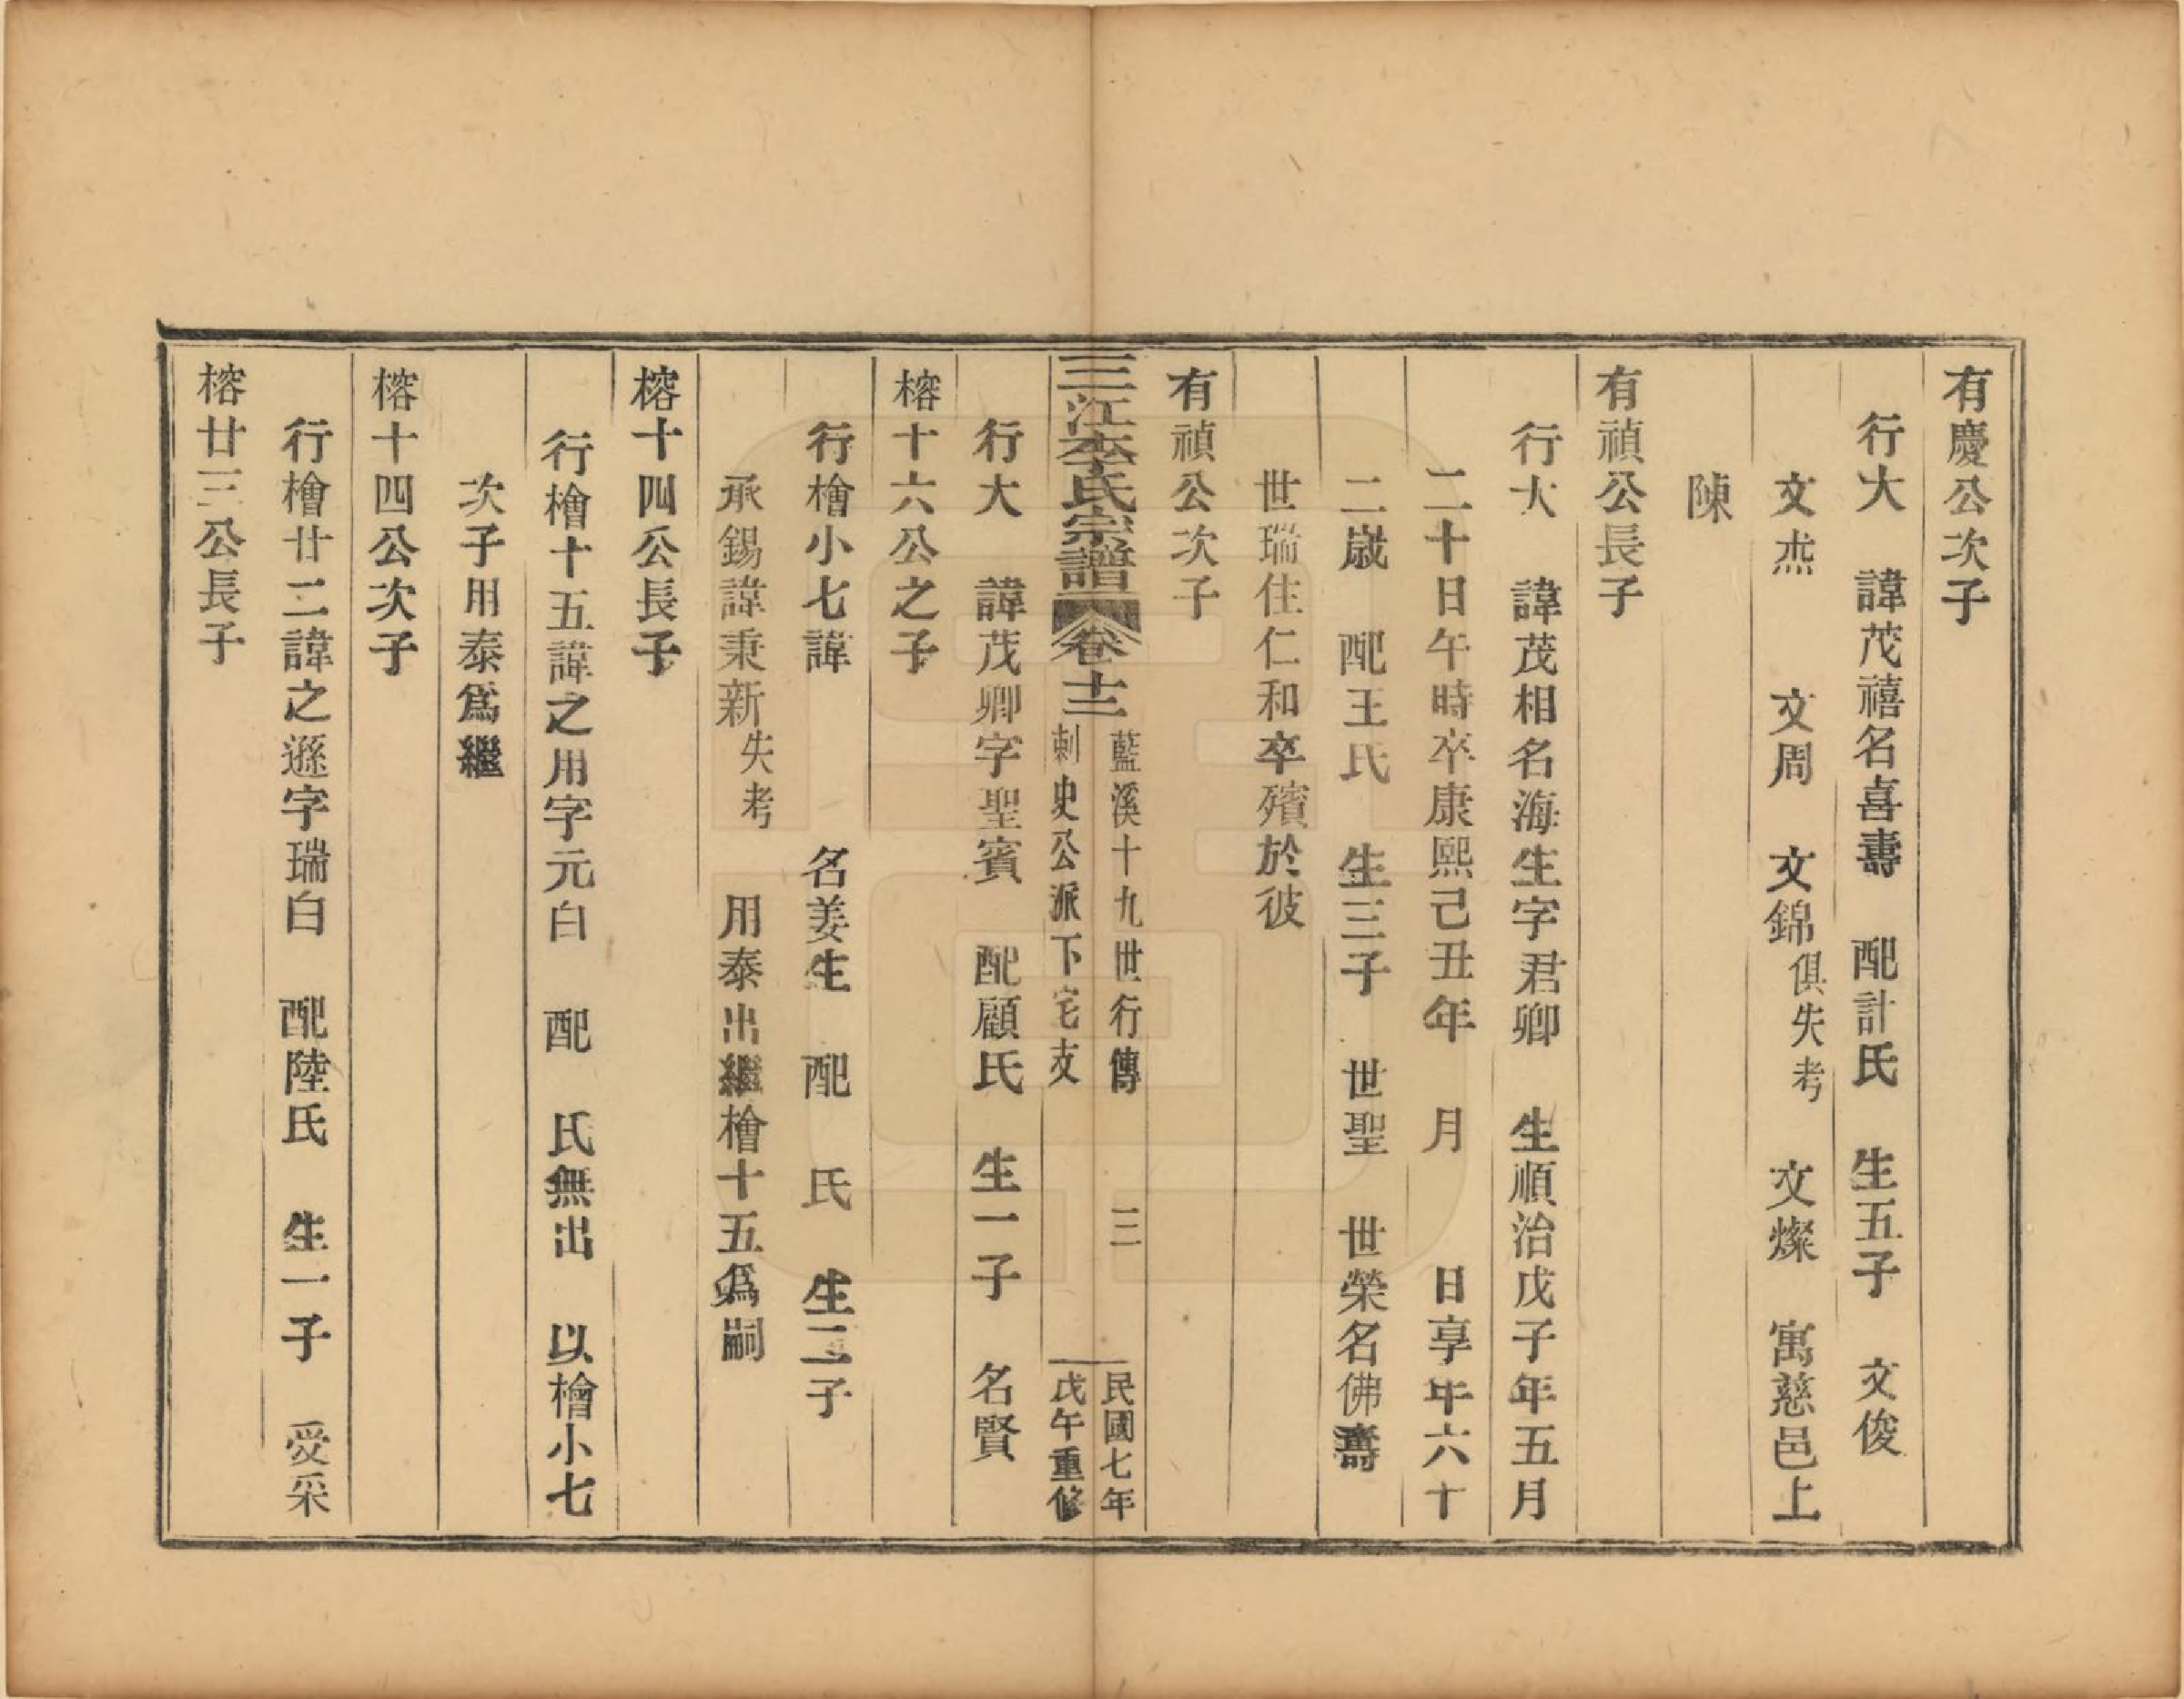 有慶公次子
行大　諱茂禧名喜壽　配計氏　生五子　文俊
文杰　文周　文錦俱失考　文燦　寓慈邑上
陳
有禎公長子
行大　諱茂相名海生字君卿　生順治戊子年五月
二十日午時卒康熙己丑年　月　日享年六十
二歲　配王氏　生三子　世聖　世榮名佛壽
世瑞住仁和卒殯於彼
有禎公次子
三江李氏宗譜　卷十二　藍溪十九世行傳　三　民國七年
刺史公派下宅支　戊午重修
行大　諱茂卿字聖賓　配顧氏　生一子　名賢
榕十六公之子
行檜小七諱　名姜生　配　氏　生二子
承錫諱秉新失考　用泰出繼檜十五爲嗣
榕十四公長子
行檜十五諱之用字元白　配　氏無出　以檜小七
次子用泰爲繼
榕十四公次子
行檜廿二諱之遜字瑞白　配陸氏　生一子　受采
榕廿三公長子